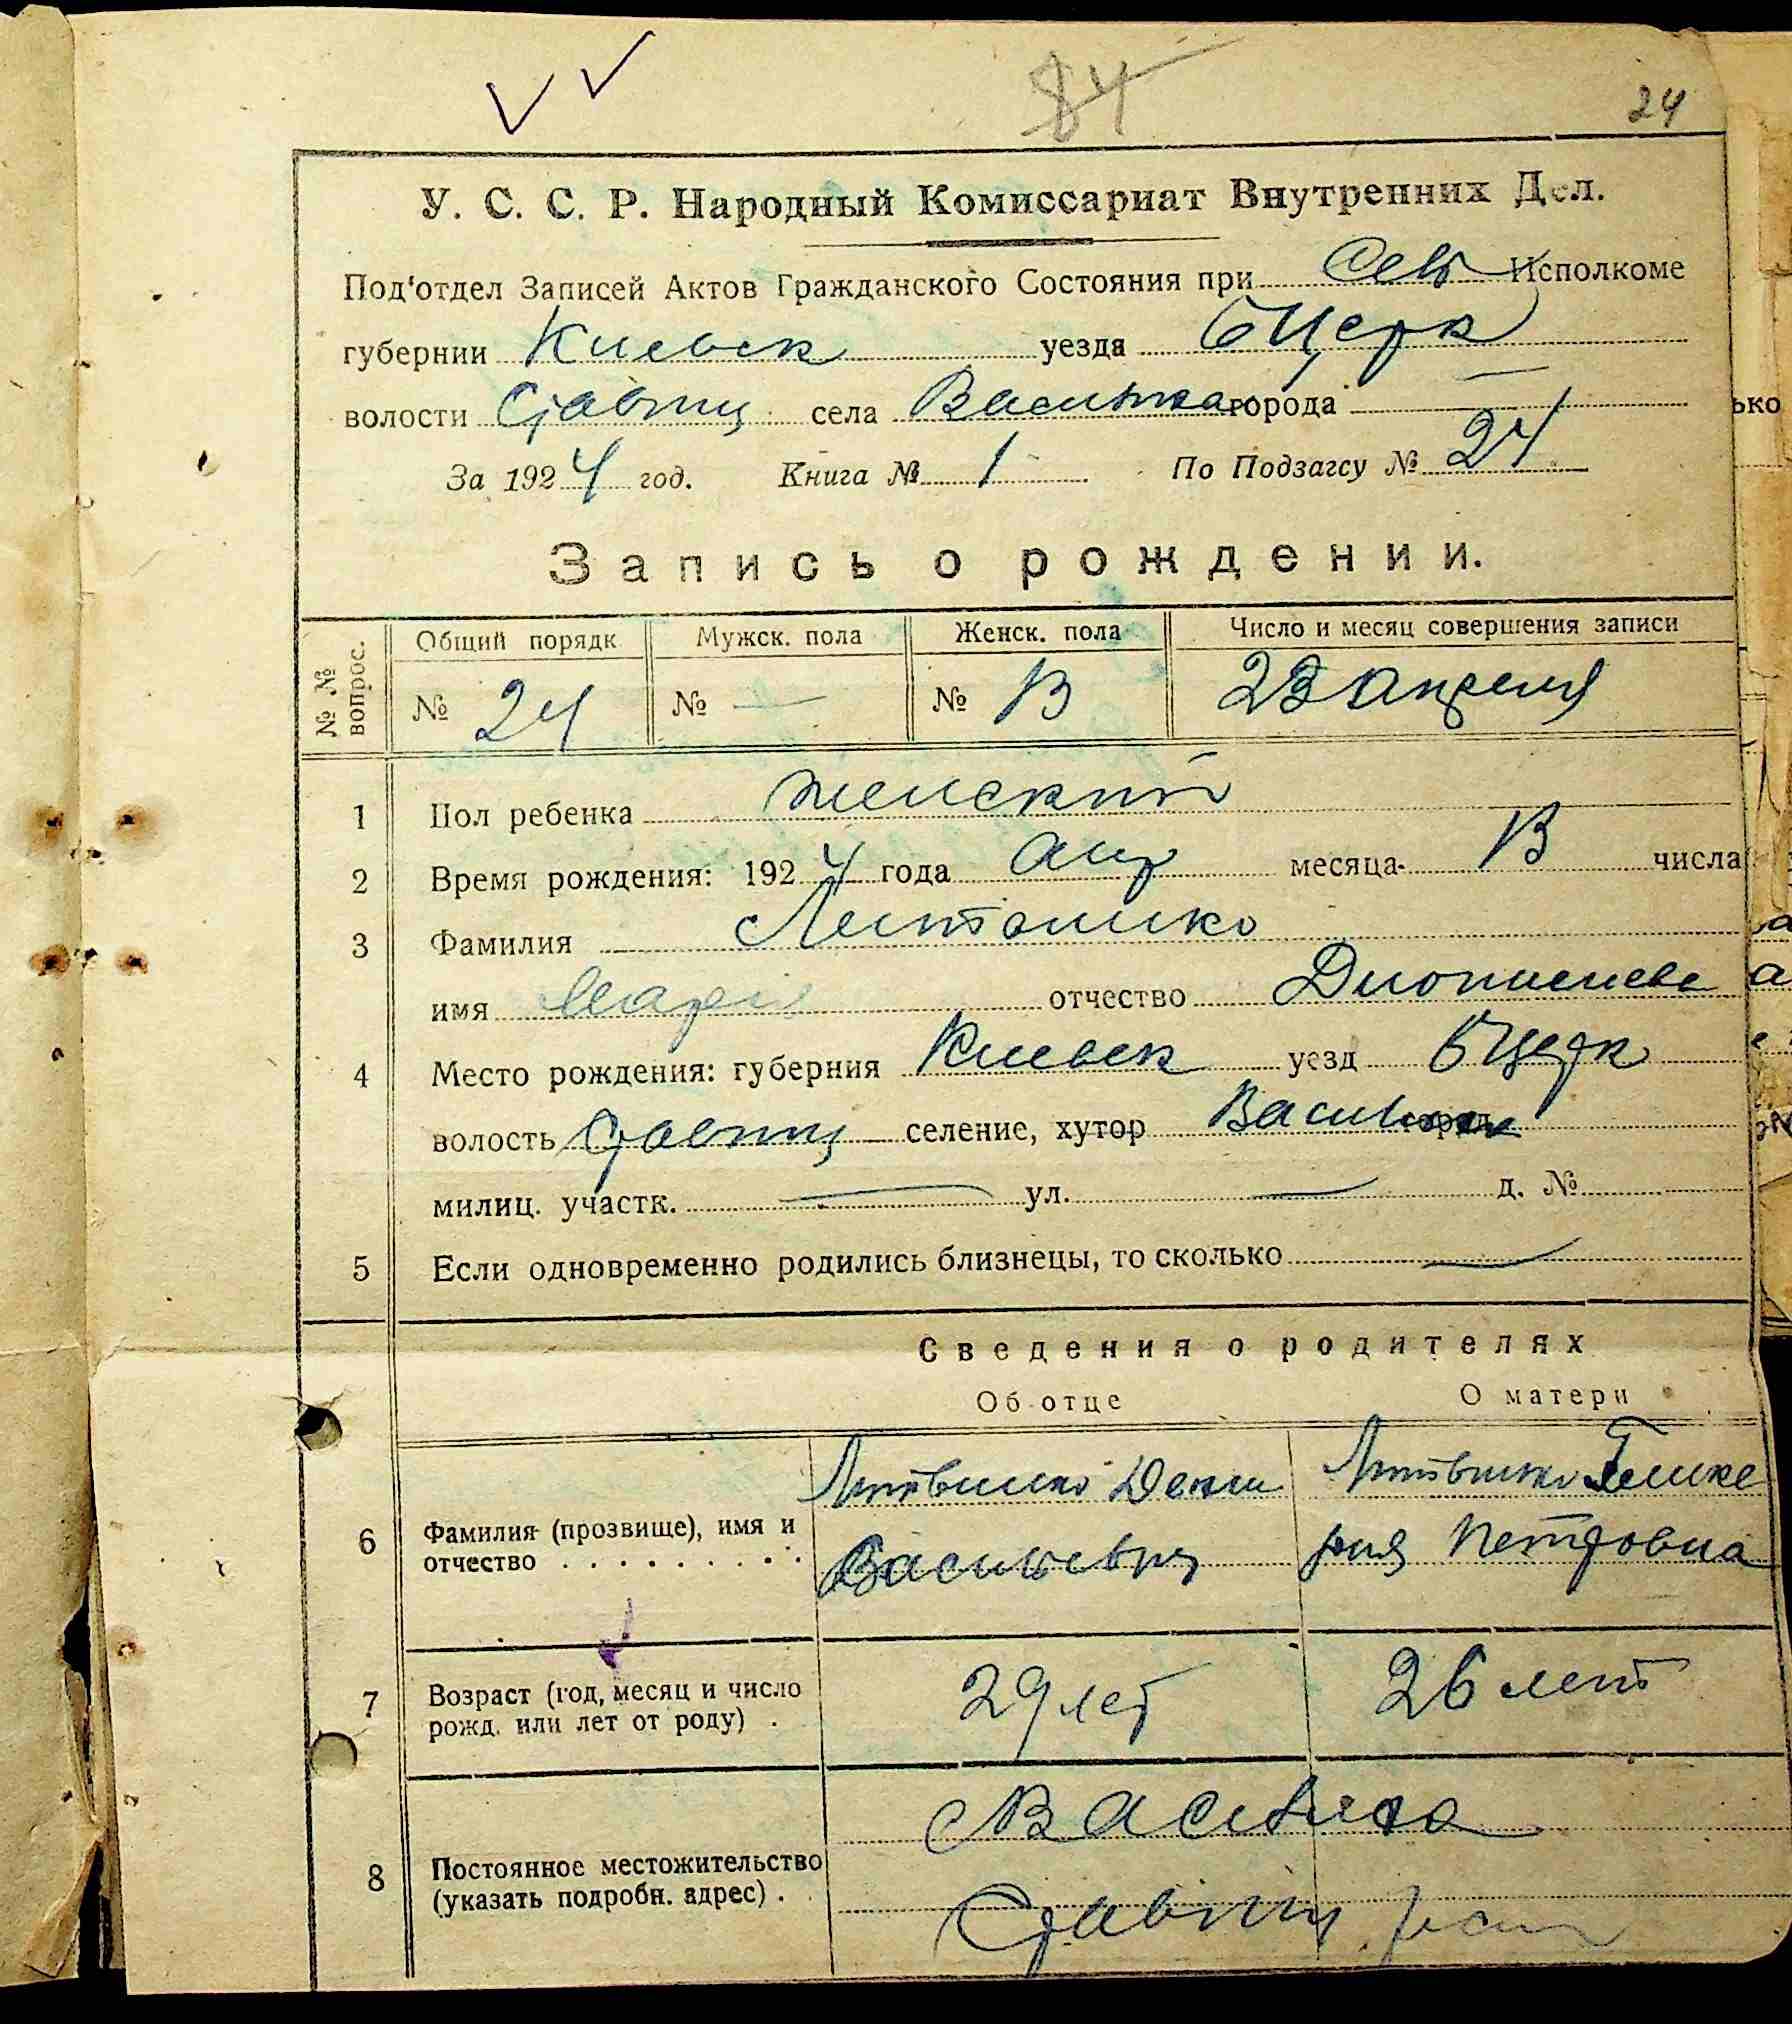 84
24
У. С. С. Р. Народный Комиссариат Внутренних Дел.
Под'отдел Записей Актов Гражданского Состояния при Сель Исполкоме
губернии Киевск уезда БЦерк
волости Ставищ села Василиха города —
За 1924 год. Книга № 1 По Подзагсу № 24
Запись о рождении.
№ № вопрос. Общий порядк Мужск. пола Женск. пола Число и месяц совершения записи
№ 24 № — № 13 23 апреля
1 Пол ребенка женский
2 Время рождения: 1924 года апр месяца 13 числа
3 Фамилия
имя Мария отчество
4 Место рождения: губерния Киевск уезд БЦерк
волость Ставищ селение, хутор город
милиц. участк. — ул. — д. №
5 Если одновременно родились близнецы, то сколько —
Сведения о родителях
Об отце О матери
Литвинко Литвинко
6 Фамилия (прозвище), имя и
отчество Васильевич Петровна
7 Возраст (год, месяц и число 29 лет 26 лет
рожд. или лет от роду) .
8 Постоянное местожительство
(указать подробн. адрес) . Ставищ